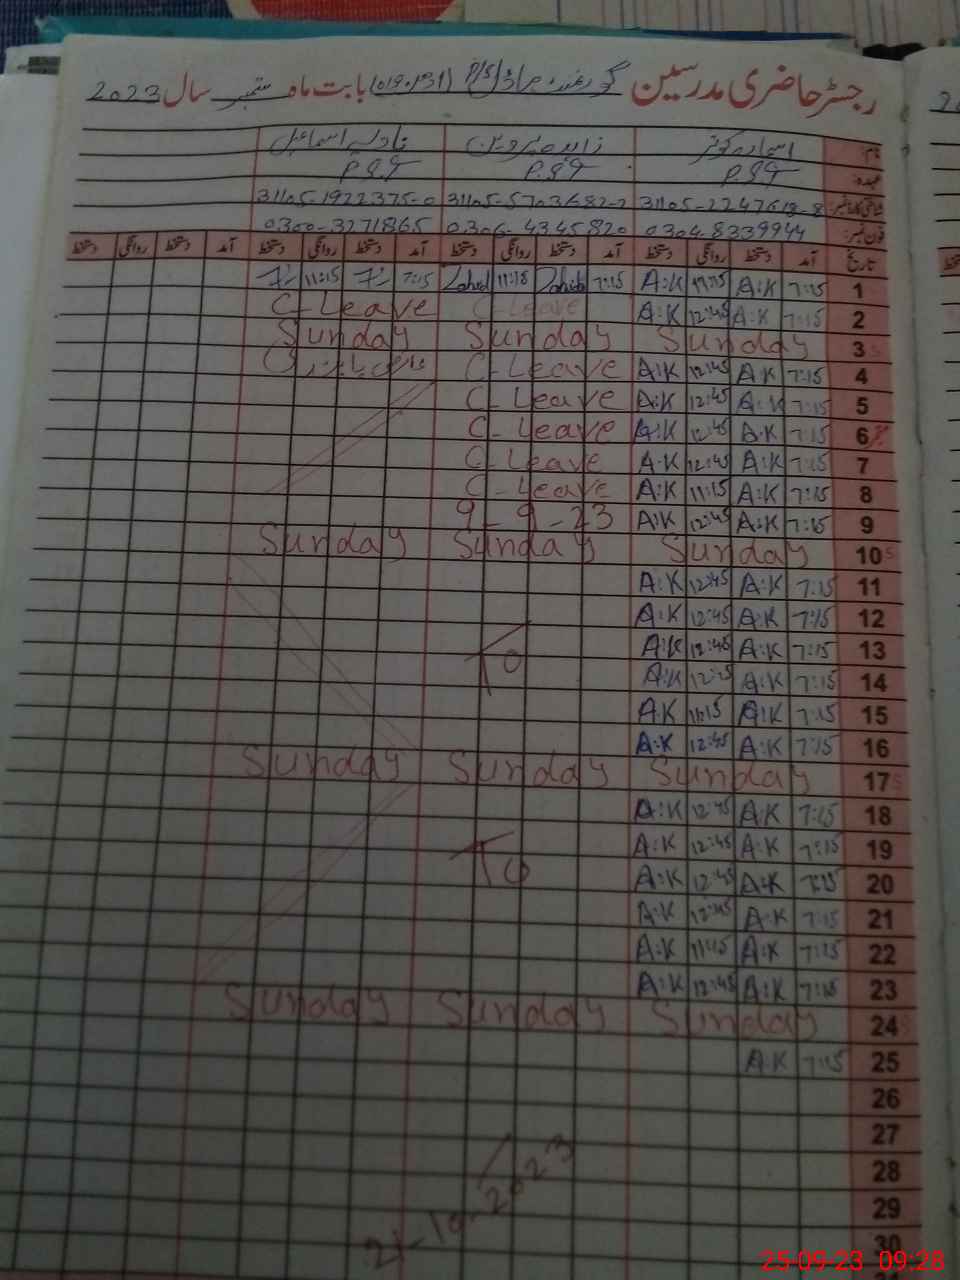 رجسٹر حاضری مدرسین گورنمنٹ P/S بابت ماہ ستمبر سال 2023
نام: اسماء کوثر زاہدہ پروین نادیہ اسماعیل
عہدہ: P.S.T P.S.T P.S.T
شناختی کارڈ نمبر: 31105-2247618-8 31105-5703682-2 31105-1922375-0
فون نمبر: 0304-8339944 0306-4345820 0300-3271865
تاریخ آمد دستخط روانگی دستخط آمد دستخط روانگی دستخط آمد دستخط روانگی دستخط آمد دستخط روانگی دستخط
1 7:15 A:K A:K 7:15 Zahid 11:15 Zahid 7:15 11:15
2 7:15 A:K 12:45 A:K C-Leave C-Leave
3 Sunday Sunday Sunday
4 7:15 A:K 12:45 A:K C-Leave
5 7:15 A:K 12:45 A:K C-Leave
6 7:15 A:K 12:45 A:K C-Leave
7 7:15 A:K 12:45 A:K C-Leave
8 7:15 A:K 11:15 A:K C-Leave
9 7:15 A:K 12:45 A:K 9-9-23
10 Sunday Sunday Sunday
11 7:15 A:K 12:45 A:K
12 7:15 A:K 12:45 A:K
13 7:15 A:K 12:45 A:K
14 7:15 A:K 12:45 A:K
To
15 7:15 A:K 11:15 A.K
16 7:15 A:K 12:45 A:K
17 Sunday Sunday Sunday
18 7:15 A:K 12:45 A:K
19 7:15 A:K 12:45 A:K
To
20 7:15 A:K 12:45 A:K
21 7:15 A:K 12:45 A:K
22 7:15 A:K 11:45 A:K
23 7:15 A:K 12:45 A:K
24 Sunday Sunday Sunday
25 7:15 A.K
26
27
28
21-10-2023
29
30
25-09-23 09:28